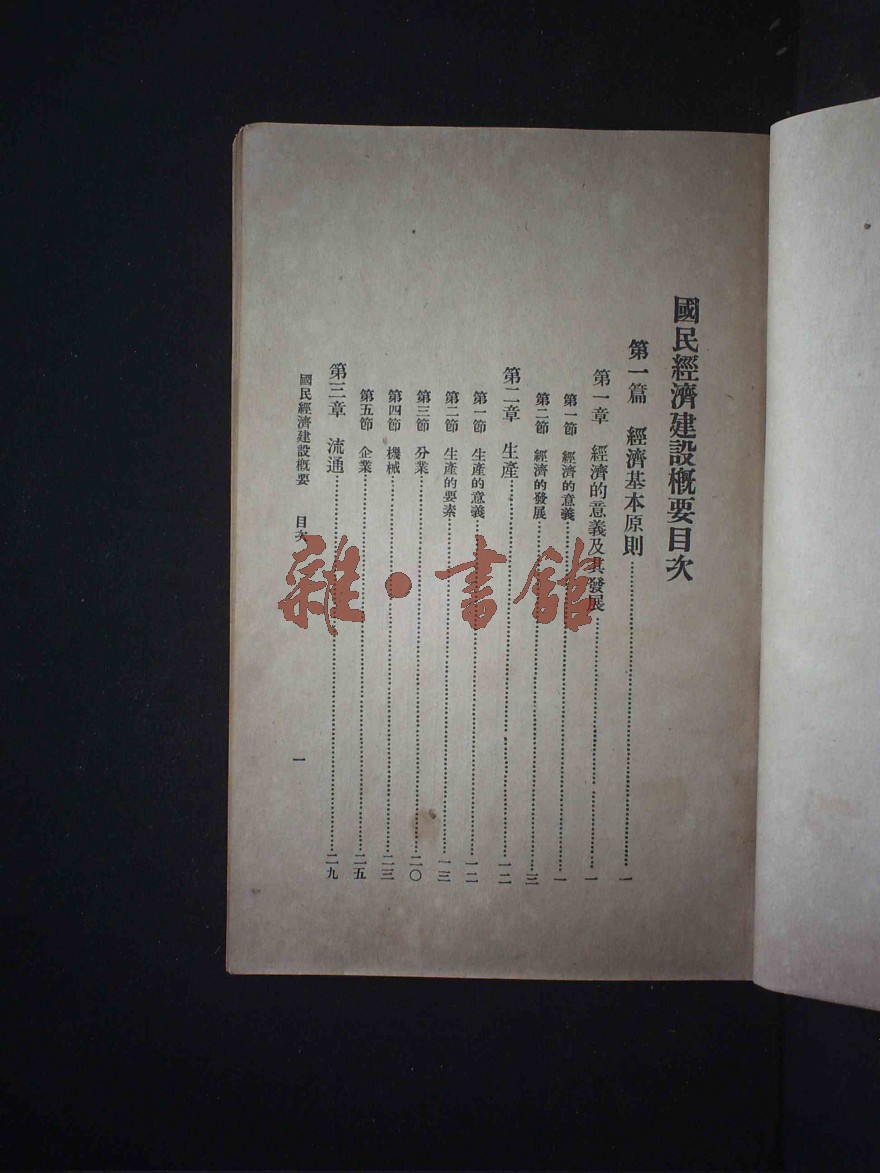 國民經濟建設概要目次
第一篇 經濟基本原則……一
第一章 經濟的意義及其發展……一
第一節 經濟的意義……一
第二節 經濟的發展……三
第二章 生產……一二
第一節 生產的意義……一二
第二節 生產的要素……一三
第三節 分業……二〇
第四節 機械……二三
第五節 企業……二五
第三章 流通……二九
國民經濟建設概要 目次 一
雜·書館